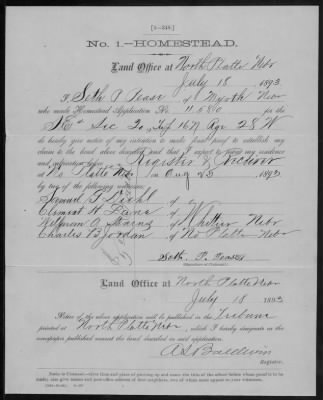 [4-348.]
No. 1.—HOMESTEAD.
Land Office at North Platte Nebr
July 18, 1893
I, Seth P. Pease, of Myrtle Nebr
who made Homestead Application No. for the
SE 4 Sec 20, Twp 16 N Rge 28 W
do hereby give notice of my intention to make final proof to establish my
claim to the land above described, and that I expect to prove my residence
and cultivation before Register & Receiver
at No Platte Nebr on Aug 25 1893
by two of the following witnesses:
Samuel T. of
Clement H. of
O. of Whittier Nebr
Charles B. Jordan of No Platte Nebr
Seth P. Pease
(Signature of Claimant.)
Land Office at North Platte Nebr
July 18 1893
Notice of the above application will be published in the Tribune
printed at North Platte Nebr, which I hereby designate as the
newspaper published nearest the land described in said application.
A S Baldwin
Register.